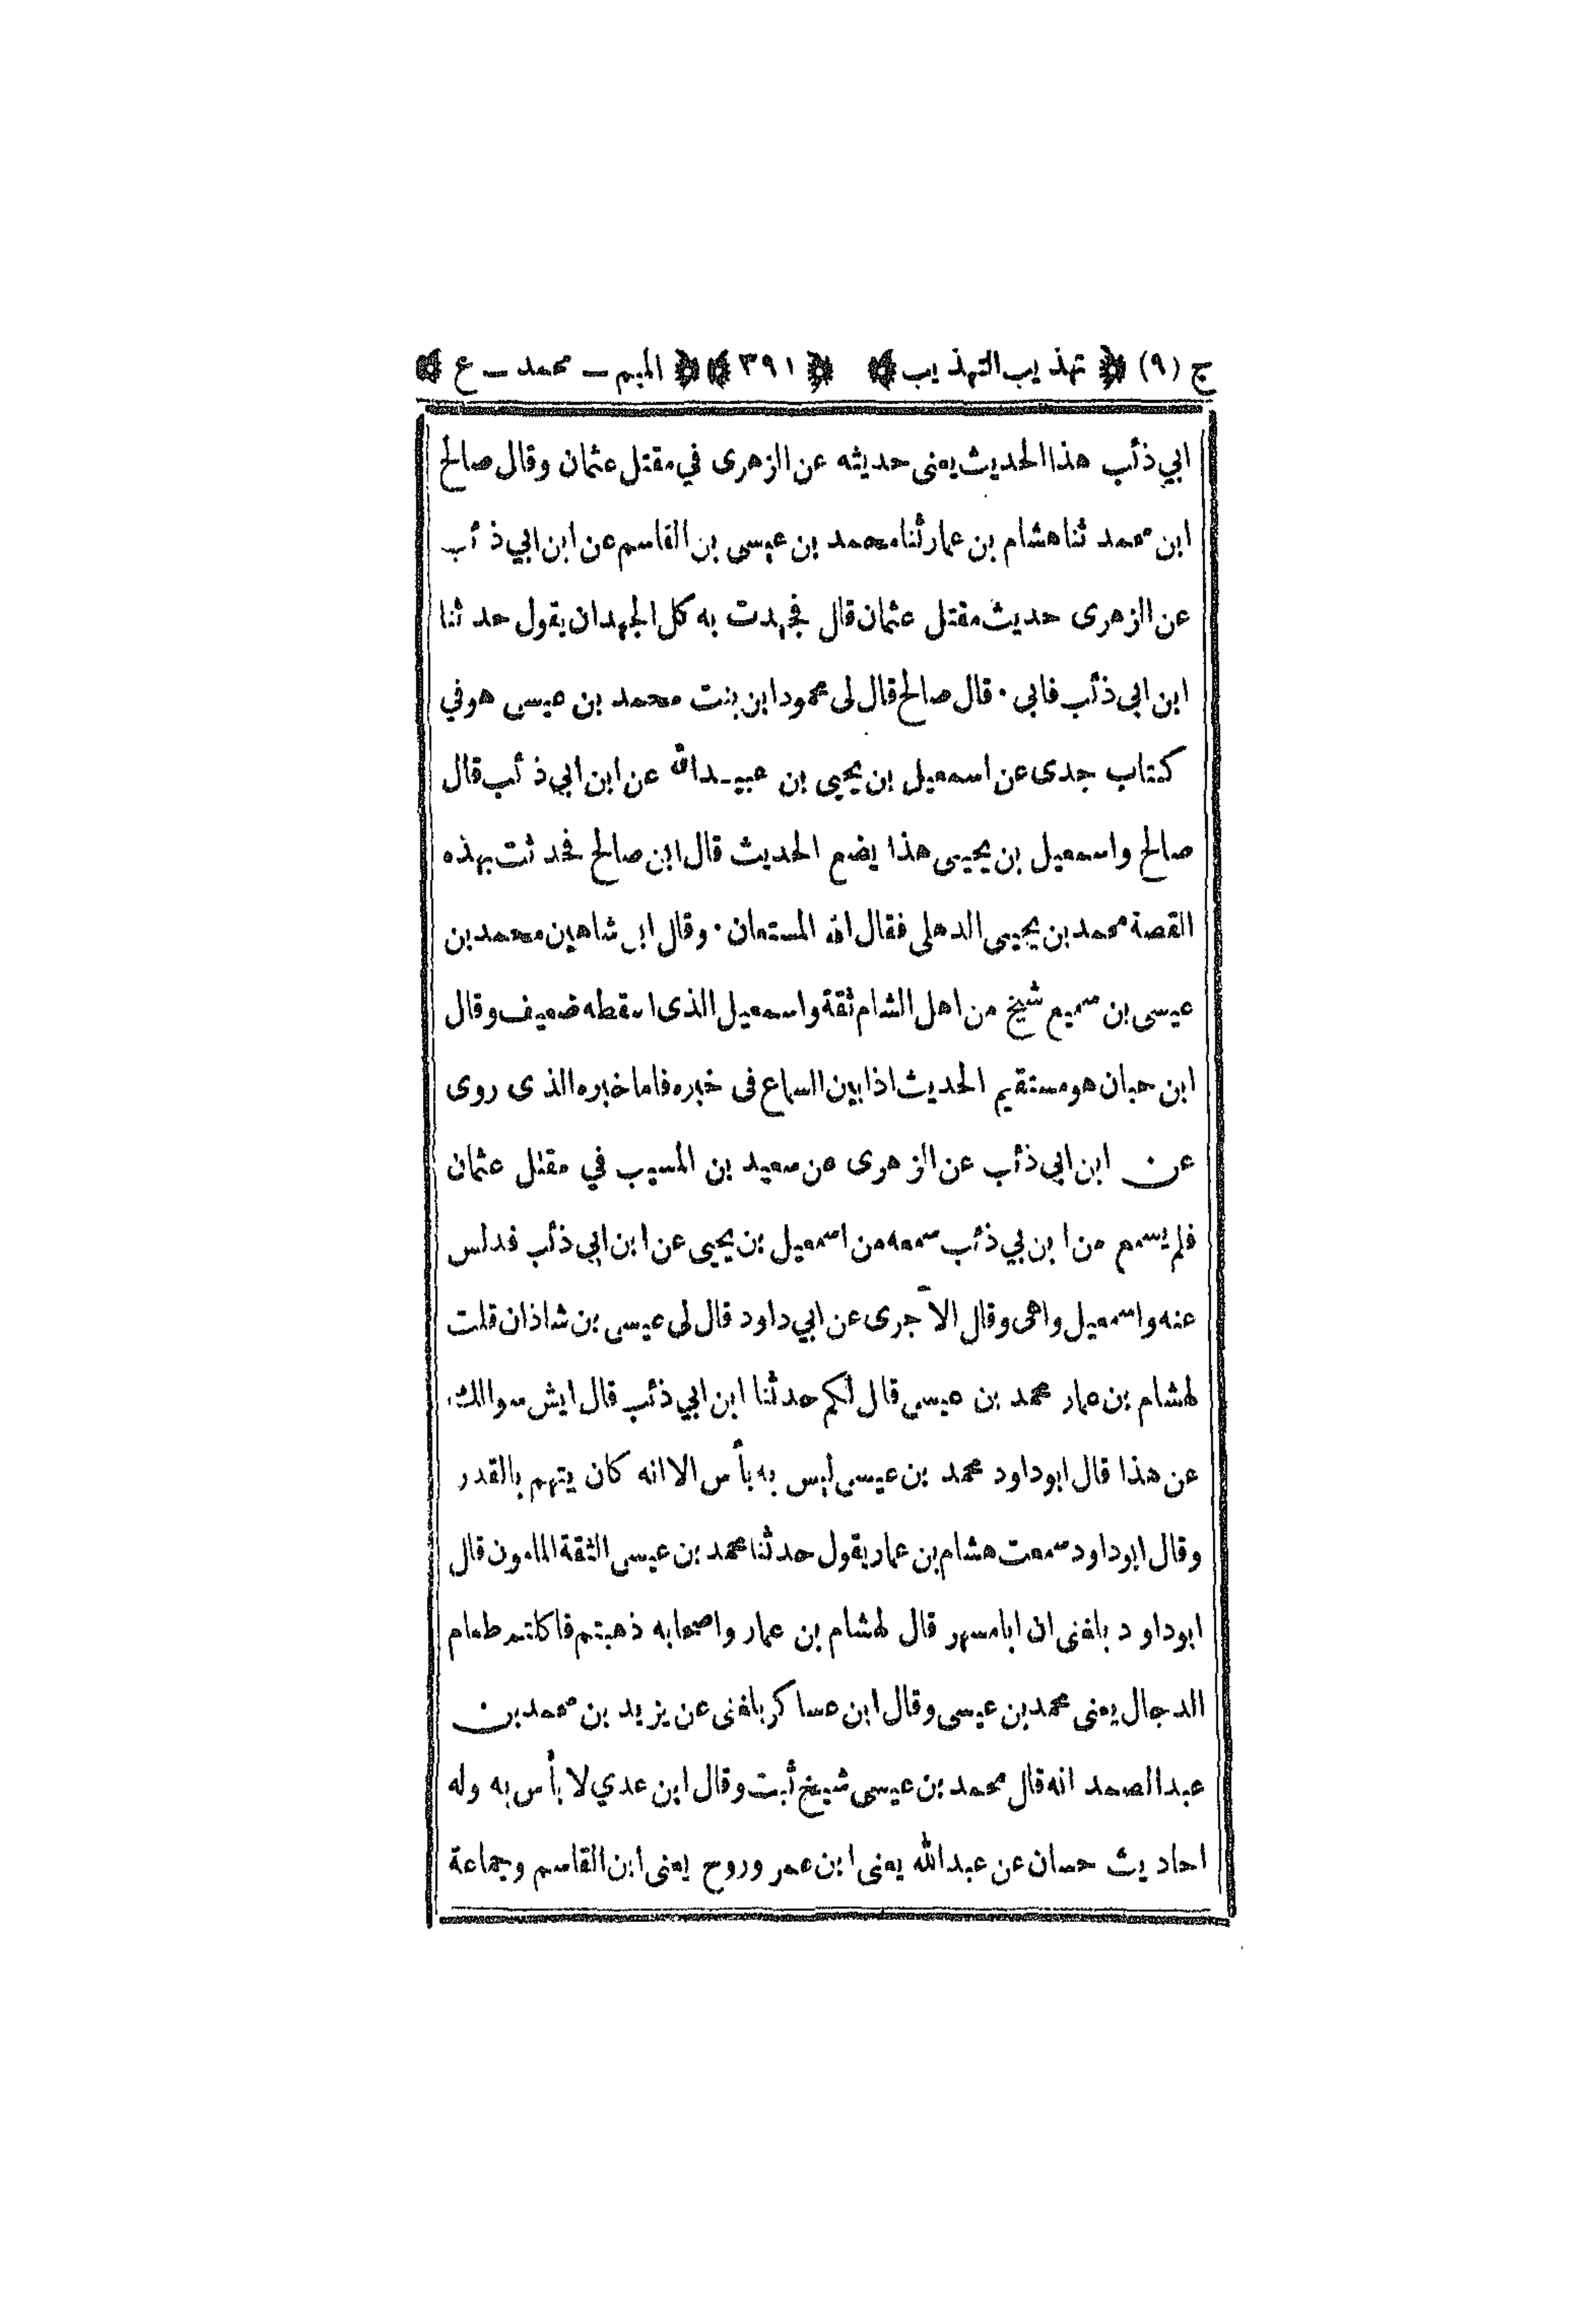 ج (٩) ﴿ تهذيب التهذيب ﴾ ﴿ ٣٩١ ﴾ ﴿ الميم ـ محمد ـ ع ﴾
ابي ذئب هذا الحديث يعنى حديثه عن الزهرى في مقتل عثمان وقال صالح
ابن محمد ثنا هشام بن عمار ثنا محمد بن عيسى بن القاسم عن ابن ابي ذئب
عن الزهرى حديث مقتل عثمان قال فجهدت به كل الجهد ان يقول حدثنا
ابن ابى ذئب فابى · قال صالح قال لى محمود ابن بنت محمد بن عيسى هو في
كتاب جدى عن اسمعيل بن يحيى بن عبيد الله عن ابن ابي ذئب قال
صالح واسمعيل بن يحيى هذا يضع الحديث قال ابن صالح فحدثت بهذه
القصة محمد بن يحيى الدهلى فقال الله المستعان · وقال ابن شاهين محمد بن
عيسى بن سميع شيخ من اهل الشام ثقة واسمعيل الذى اسقطه ضعيف وقال
ابن حبان هو مستقيم الحديث اذا بين السماع فى خبره فاما خبره الذى روى
عن ابن ابي ذئب عن الزهرى عن سعيد بن المسيب في مقتل عثمان
فلم يسمع من ابن بي ذئب سمعه من اسمعيل بن يحيى عن ابن ابي ذئب فدلس
عنه واسمعيل واهى وقال الآجرى عن ابي داود قال لى عيسى بن شاذان قلت
لهشام بن عمار محمد بن عيسى قال لكم حدثنا ابن ابي ذئب قال ايش سوالك
عن هذا قال ابو داود محمد بن عيسى ليس به بأس الا انه كان يتهم بالقدر
وقال ابو داود سمعت هشام بن عمار يقول حدثنا محمد بن عيسى الثقة المامون قال
ابو داود بلغنى ان ابا مسهر قال لهشام بن عمار واصحابه ذهبتم فاكلتم طعام
الدجال يعنى محمد بن عيسى وقال ابن عساكر بلغنى عن يزيد بن محمد بن
عبد الصمد انه قال محمد بن عيسى شيخ ثبت وقال ابن عدي لا بأس به وله
احاديث حسان عن عبد الله يعنى ابن عمر وروح يعنى ابن القاسم وجماعة